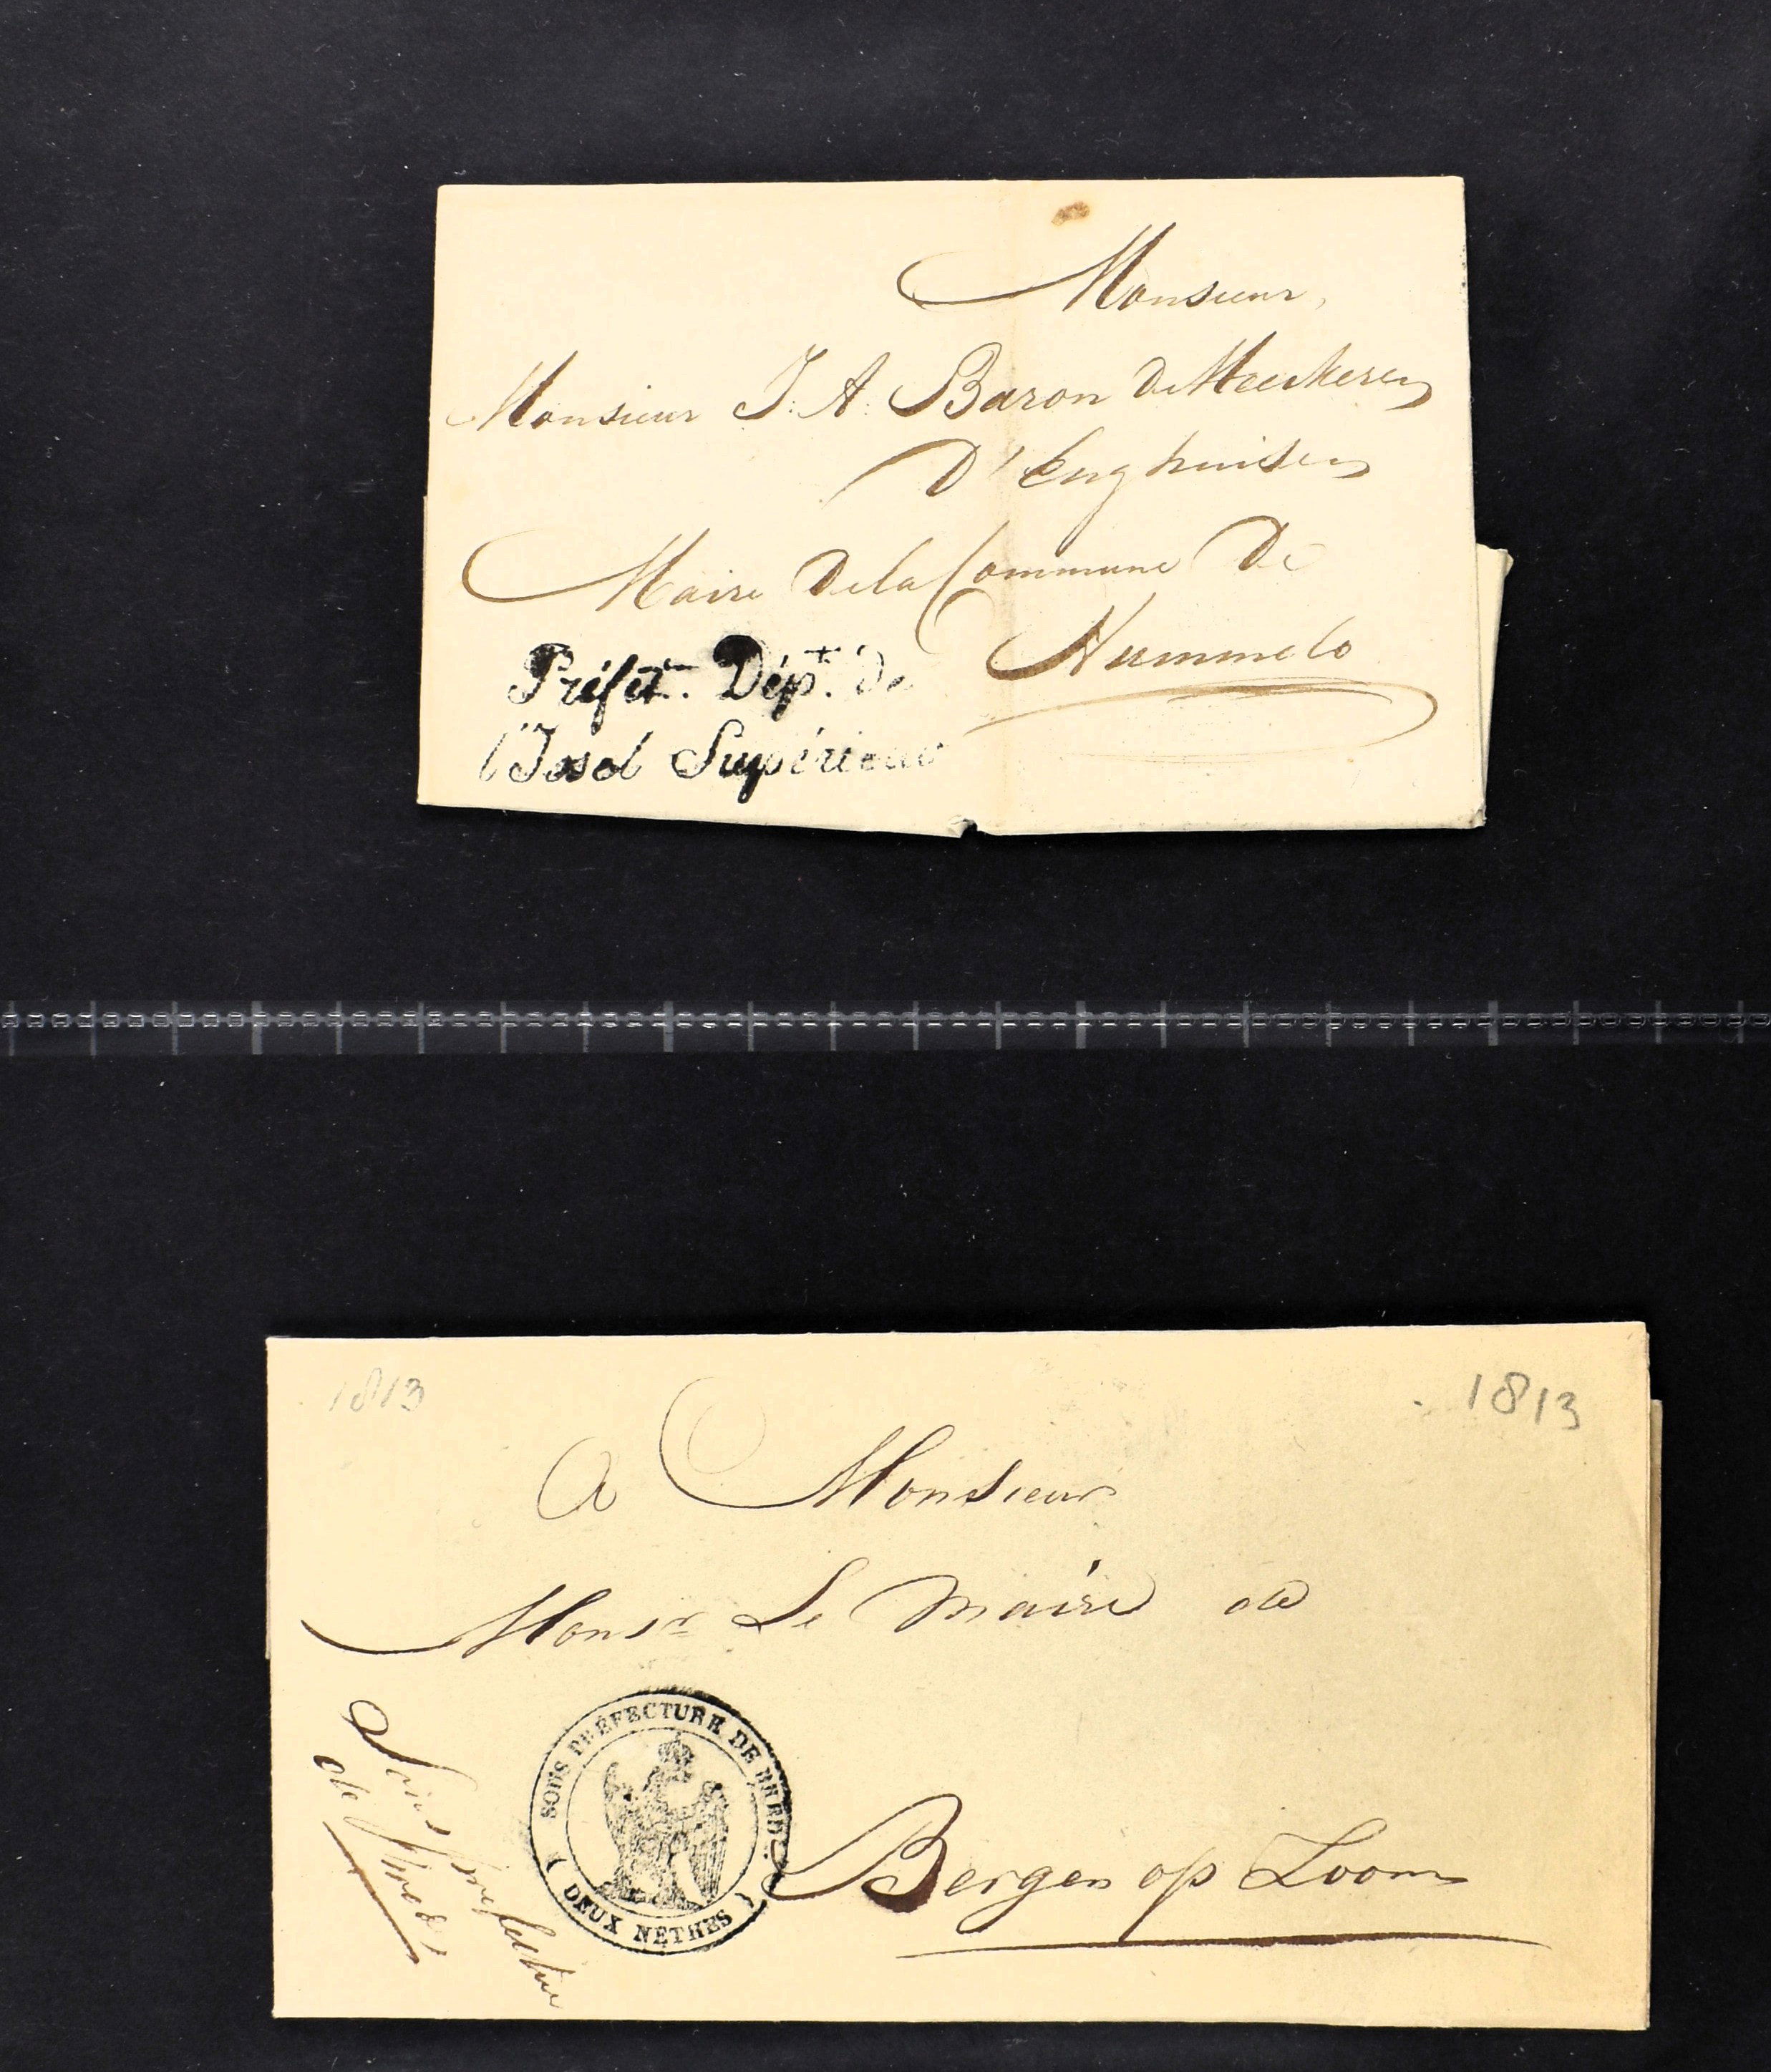 Monsieur,
Monsieur J: A: Baron De Heeckeren
D'Enghuisen
Maire De la Commune De
Hummelo
Préfet. Dépt. de
l'Issel Supérieur
1813
1813
A Monsieur
Monsr Le Maire de
Bergen op Zoom
SOUS PRÉFECTURE DE BREDA
( DEUX NÈTHES )
Sous préfecture
de Breda